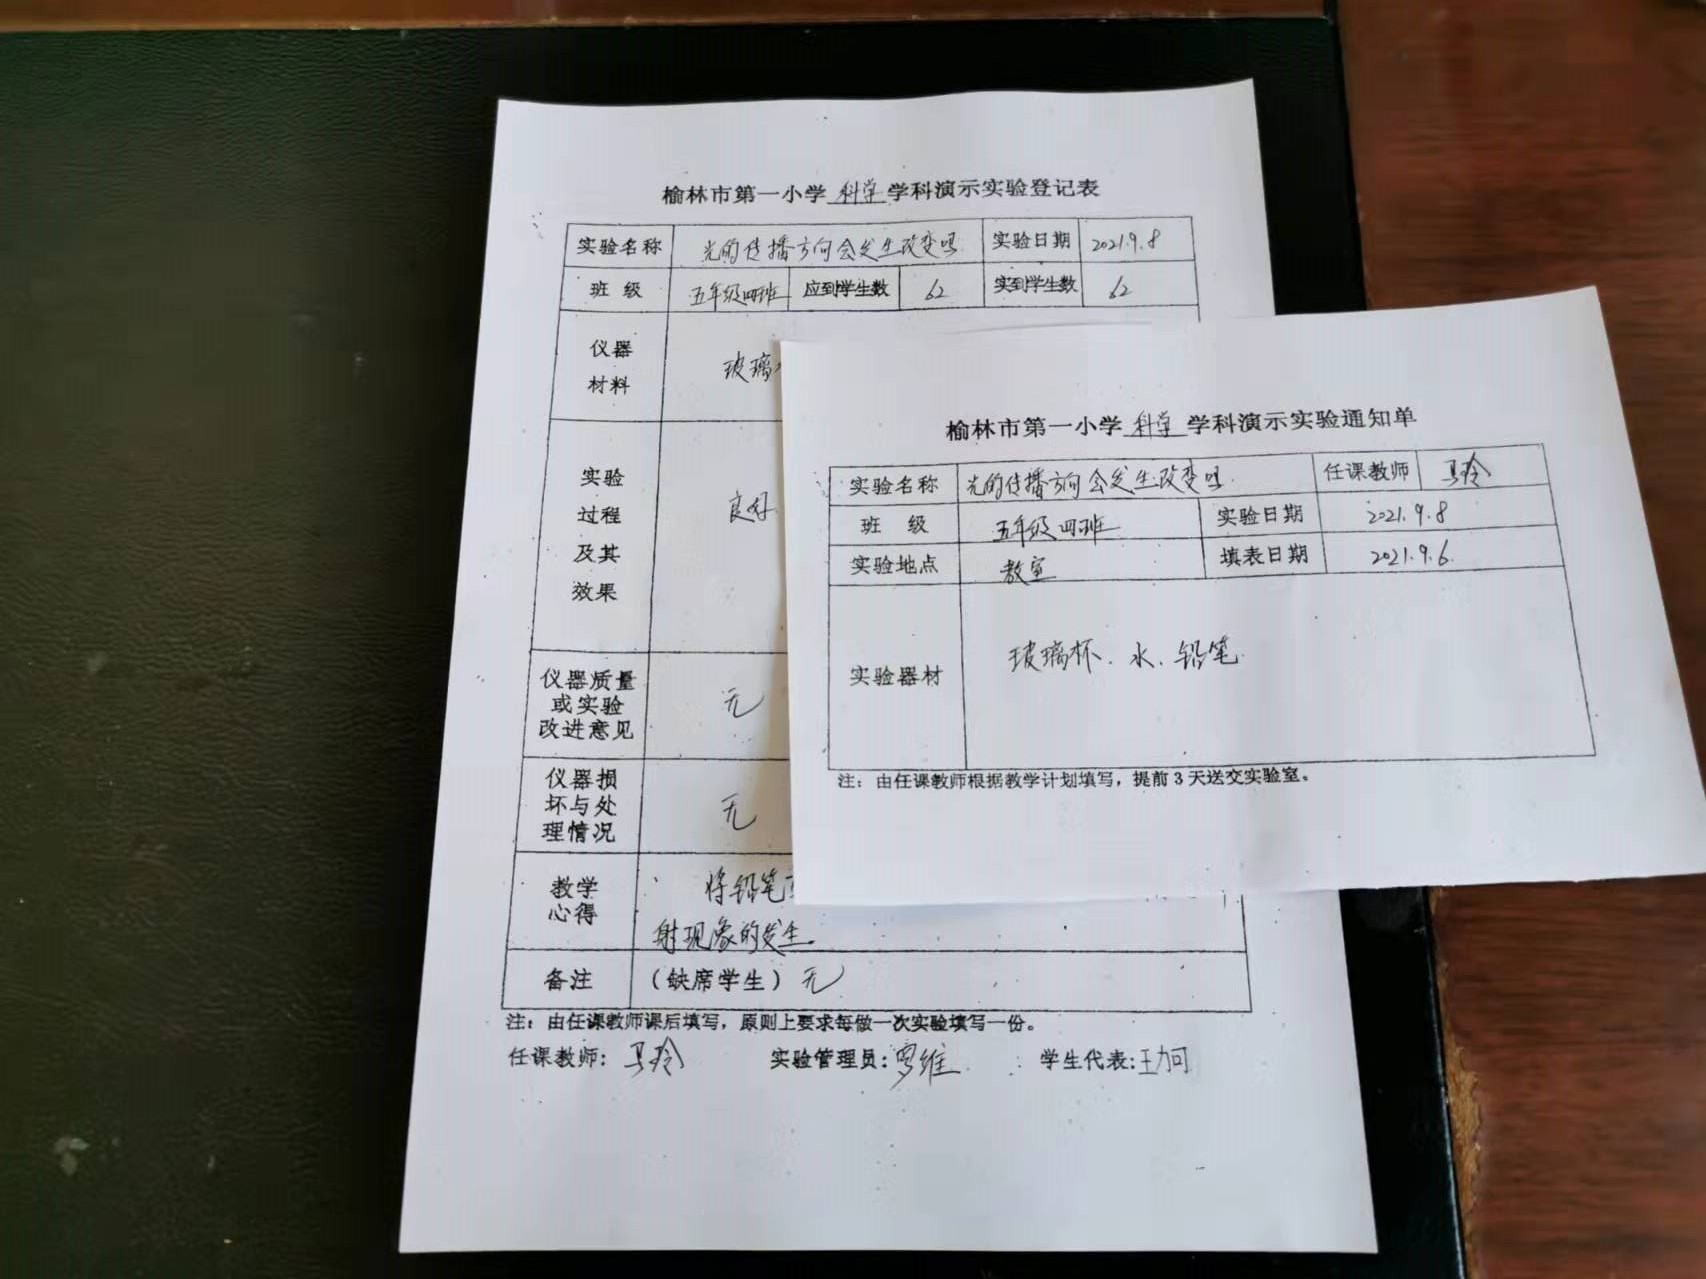 榆林市第一小学 科学 学科演示实验登记表
实验名称 光的传播方向会发生改变吗 实验日期 2021.9.8
班 级 五年级四班 应到学生数 62 实到学生数 62
仪器
材料
玻璃
实验
过程
及其
效果
良好
仪器质量
或实验
改进意见
无
仪器损
坏与处
理情况
无
教学
心得
将铅笔
射现象的发生。
备注 (缺席学生) 无
注：由任课教师课后填写，原则上要求每做一次实验填写一份。
任课教师: 马玲 实验管理员: 罗维 学生代表: 王加可
榆林市第一小学 科学 学科演示实验通知单
实验名称 光的传播方向会发生改变吗 任课教师 马玲
班 级 五年级四班 实验日期 2021.9.8
实验地点 教室 填表日期 2021.9.6
实验器材 玻璃杯、水、铅笔
注：由任课教师根据教学计划填写，提前3天送交实验室。